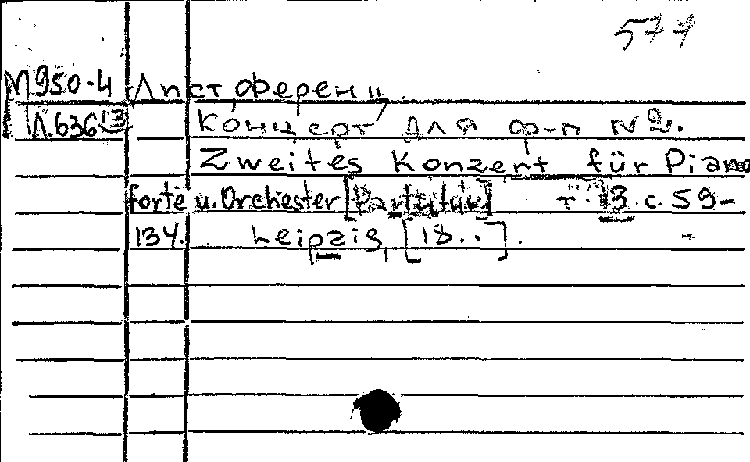 577
М950-4 Лист, Ференц.
Л.636 13 Концерт для ф-п №2.
Zweites Konzert für Piano
forte u. Orchester [Partitur] т. 13. с. 59-
134. Leipzig, [18..].